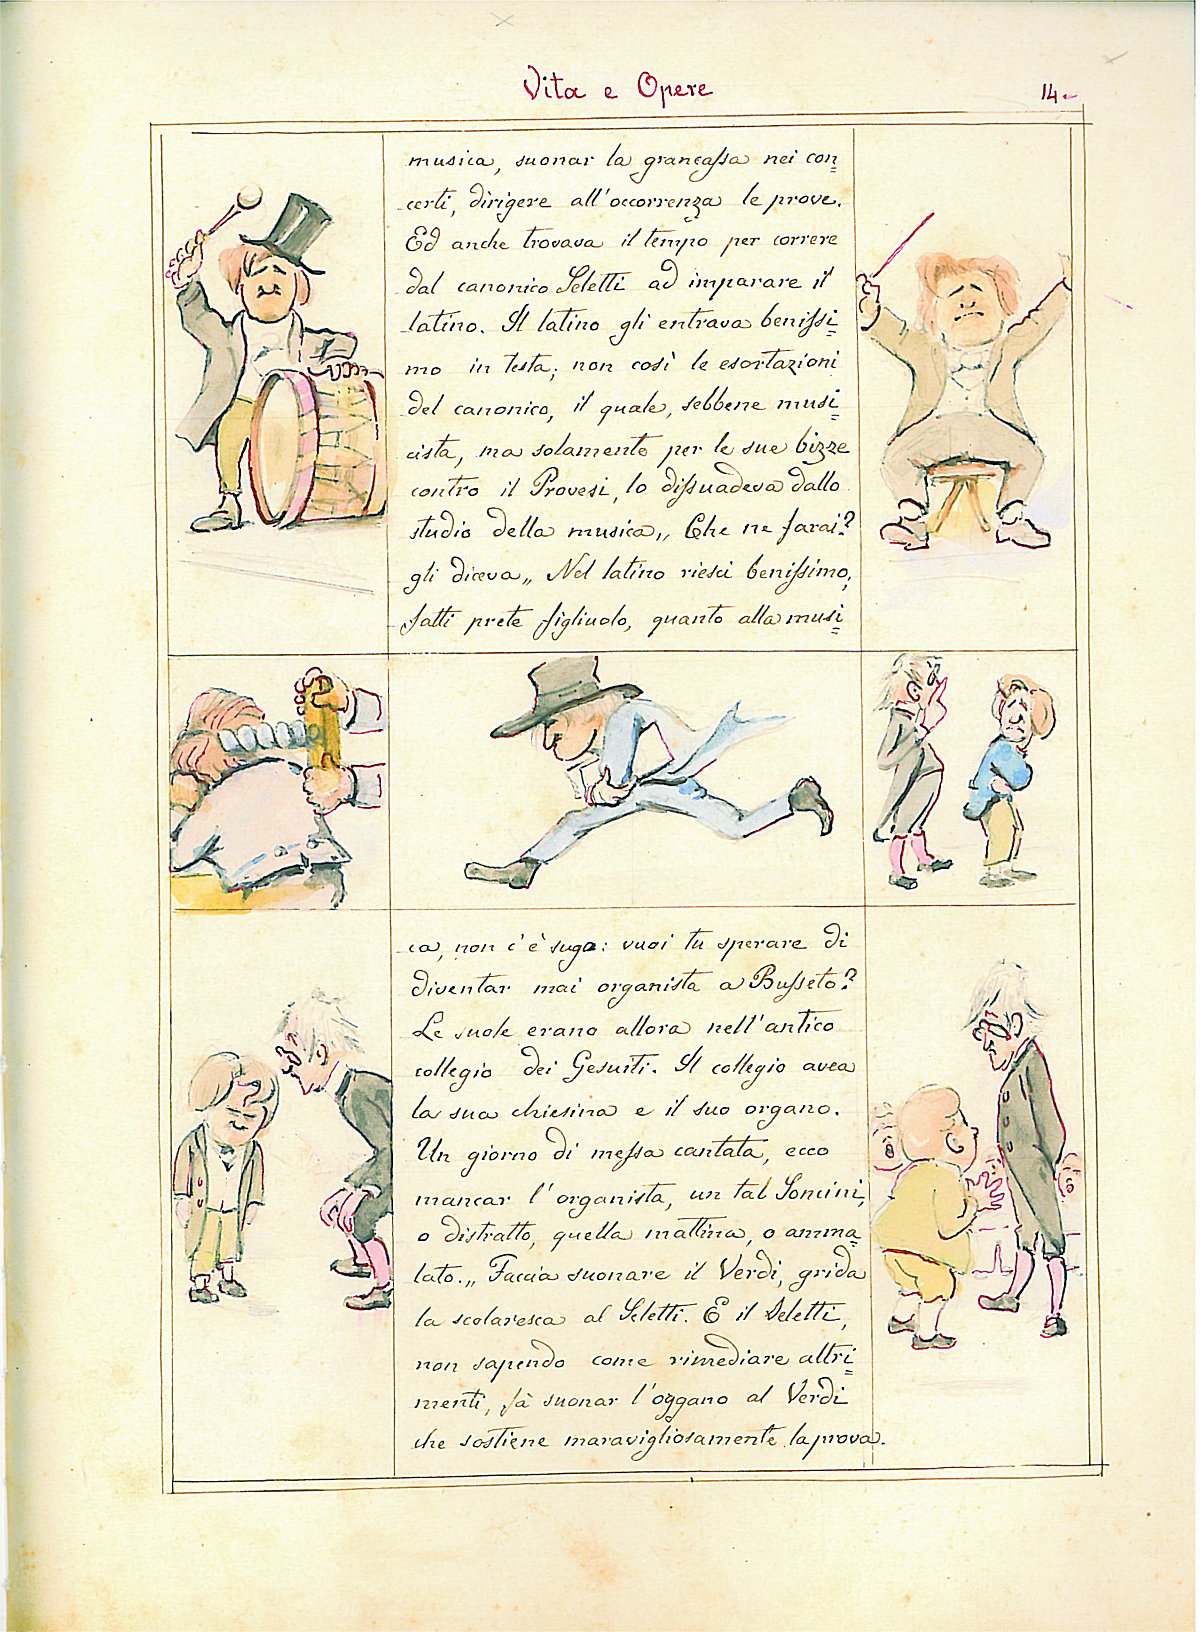 Vita e Opere
14.
musica, suonar la grancassa nei con=
certi, dirigere all'occorrenza le prove.
Ed anche trovava il tempo per correre
dal canonico Seletti ad imparare il
latino. Il latino gli entrava benissi=
mo in testa; non così le esortazioni
del canonico, il quale, sebbene musi=
cista, ma solamente per le sue bizze
contro il Provesi, lo dissuadeva dallo
studio della musica „ Che ne farai?
gli diceva „ Nel latino riesci benissimo;
fatti prete figliuolo, quanto alla musi=
ca, non c'è sugo: vuoi tu sperare di
diventar mai organista a Busseto?
Le suole erano allora nell'antico
collegio dei Gesuiti. Il collegio avea
la sua chiesina e il suo organo.
Un giorno di messa cantata, ecco
mancar l'organista, un tal Soncini,
o distratto, quella mattina, o amma=
lato. „ Faccia suonare il Verdi, grida
la scolaresca al Seletti. E il Seletti,
non sapendo come rimediare altri=
menti, fà suonar l'oggano al Verdi
che sostiene maravigliosamente la prova.